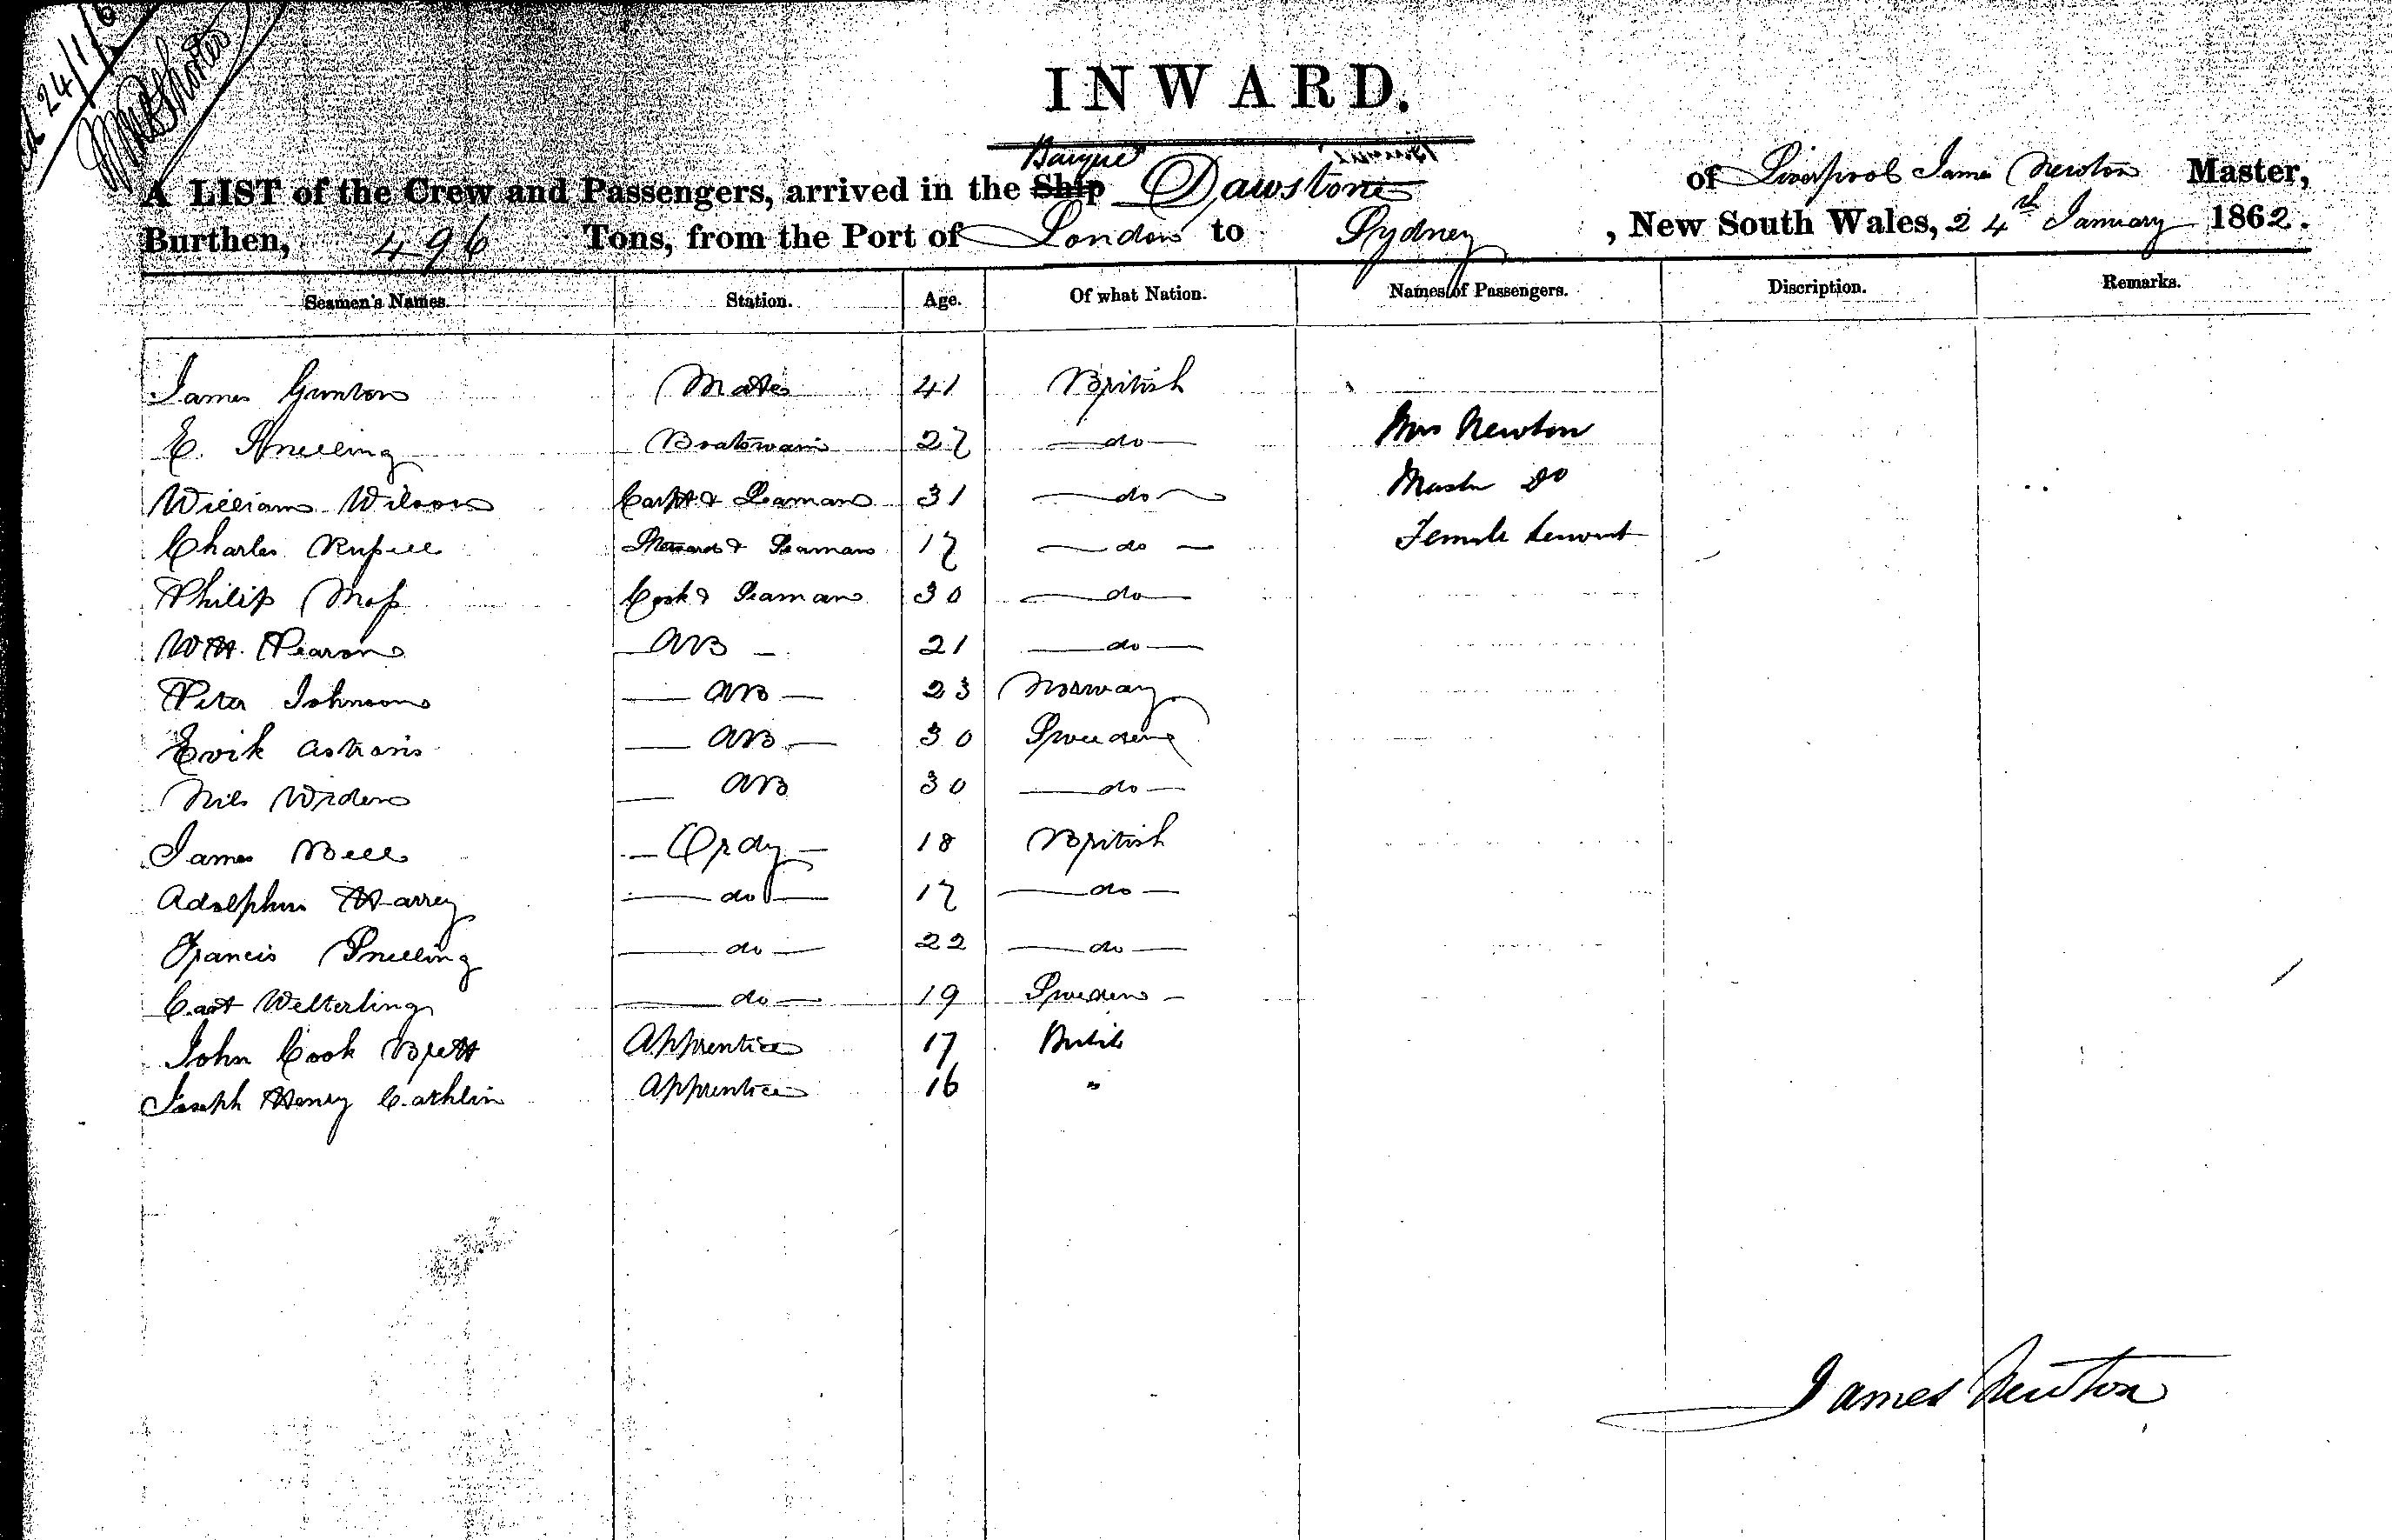 24/1/6
INWARD.
Barque
A LIST of the Crew and Passengers, arrived in the Ship Dawstone of Liverpool James Newton Master,
Burthen, 496 Tons, from the Port of London to Sydney, New South Wales, 24th January 1862.
Seamen's Names. Station. Age. Of what Nation. Names of Passengers. Discription. Remarks.
James Gunton Mate 41 British
E. Snelling Boatswain 27 do Mrs Newton
William Wilson Carptr & Seaman 31 do Master Do
Charles Russell Steward & Seaman 17 do Female Servant
Philip Moss Cook & Seaman 30 do
Wm. Pearson AB 21 do
Peter Johnson AB 23 Norway
Erik AB 30 Sweden
Nils Widen AB 30 do
James Bell Ordy 18 British
Adolphus Harrey do 17 do
Francis Snelling do 22 do
Carl Welterling do 19 Sweden
John Cook Brett Apprentice 17 British
Joseph Henry Cathlin Apprentice 16 "
James Newton